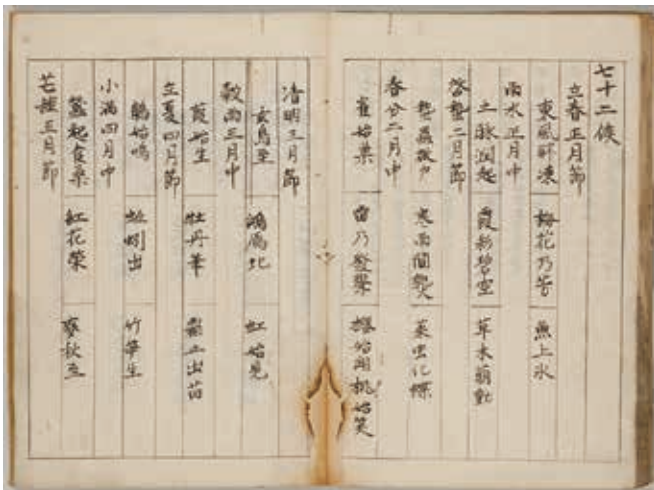 七十二候
立春正月節
東風解凍 梅花乃芳 魚上氷
雨水正月中
土脉潤起 霞彩碧空 草木萌動
啓蟄二月節
蟄蟲啟戸 寒雨間熟 菜虫化蝶
春分二月中
雀始巣 雷乃發聲 櫻始開桃始笑
清明三月節
玄鳥至 鴻鴈北 虹始見
穀雨三月中
葭始生 牡丹華 霜止出苗
立夏四月節
鵑始鳴 蚯蚓出 竹笋生
小満四月中
蚕起食桑 紅花榮 麥秋至
芒種五月節